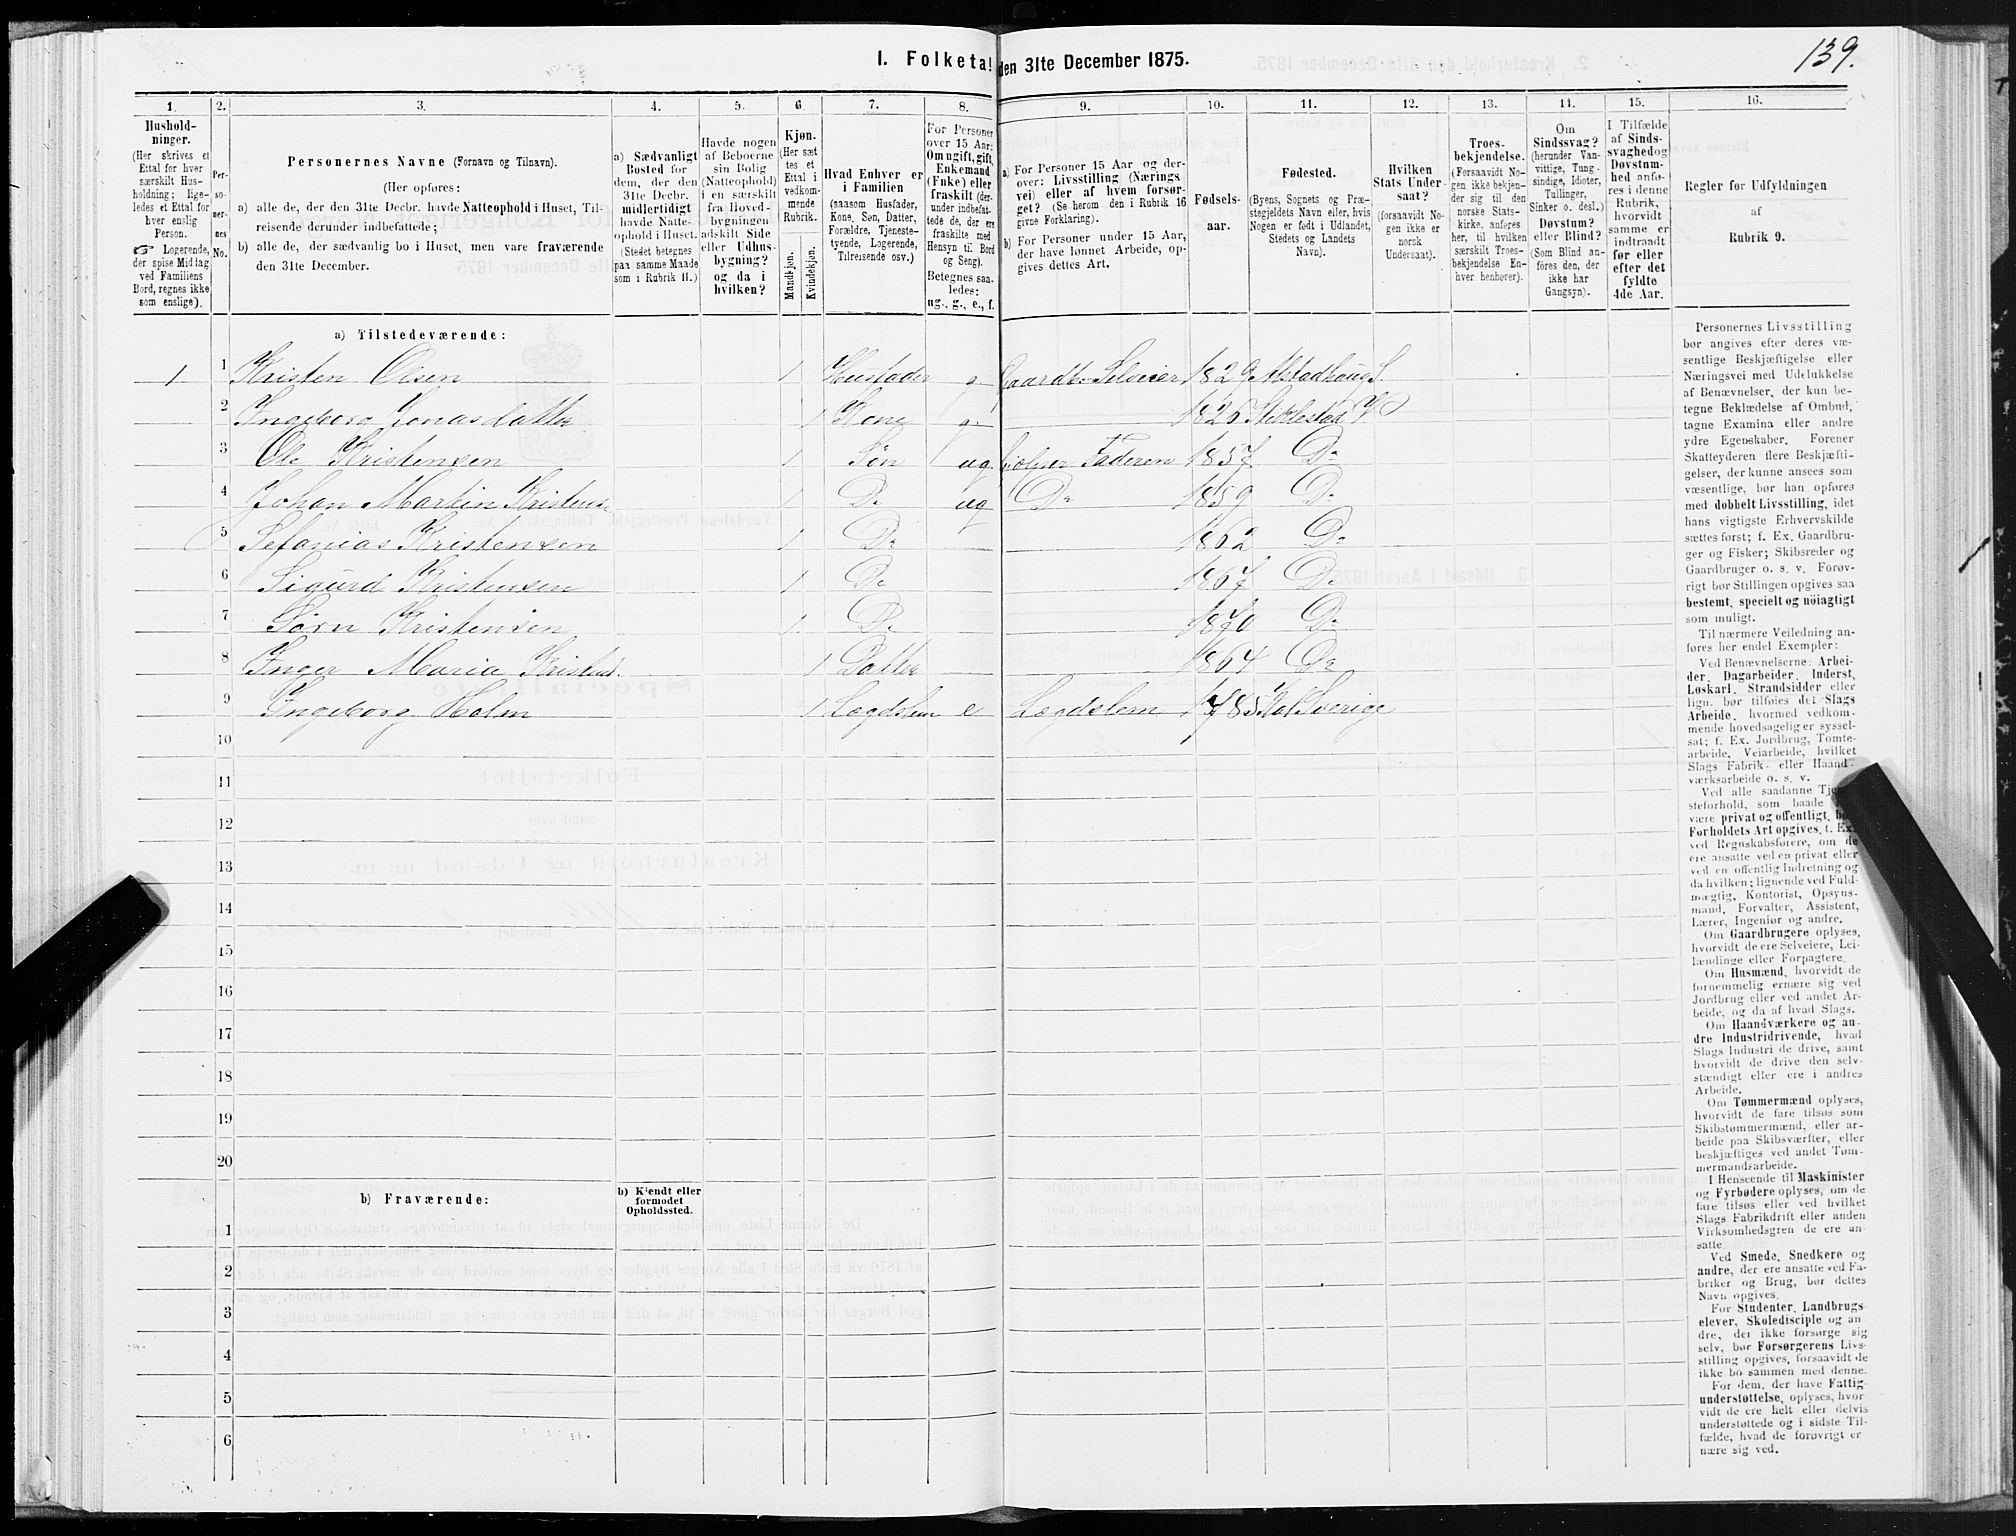 139.
I. Folketal den 31te December 1875.
1. 2. 3. 4. 5. 6. 7. 8. 9. 10. 11. 12. 13. 14. 15. 16.
Hushold-
ninger.
(Her skrives et
Ettal for hver
særskilt Hus-
holdning; lige-
ledes et Ettal for
hver enslig
Person.
Logerende,
der spise Middag
ved Familiens
Bord, regnes ikke
som enslige).
Per-
so-
ner-
nes
No.
Personernes Navne (Fornavn og Tilnavn).
(Her opføres:
a) alle de, der den 31te Decbr. havde Natteophold i Huset, Til-
reisende derunder indbefattede;
b) alle de, der sædvanlig bo i Huset, men vare fraværende
den 31te December.
a) Sædvanligt
Bosted for
dem, der den
31te Decbr.
midlertidigt
havde Natte-
ophold i Huset.
(Stedet betegnes
paa samme Maade
som i Rubrik 11.)
Havde nogen
af Beboerne
sin Bolig
(Natteophold)
i en særskilt
fra Hoved-
bygningen
adskilt Side
eller Udhus-
bygning?
og da i
hvilken?
Kjøn.
(Her sæt
tes et
Ettal i
vedkom-
mende
Rubrik.
Mandkjøn.
Kvindekjøn.
Hvad Enhver er
i Familien
(saasom Husfader,
Kone, Søn, Datter,
Forældre, Tjeneste-
tyende, Logerende,
Tilreisende osv.)
For Personer
over 15 Aar:
Om ugift, gift,
Enkemand
(Enke) eller
fraskilt (der-
under indbefat-
tede de, der ere
fraskilte med
Hensyn til Bord
og Seng).
Betegnes saa-
ledes:
ug., g., e., f.
a) For Personer 15 Aar og der-
over: Livsstilling (Nærings
vei) eller af hvem forsør-
get? (Se herom den i Rubrik 16
givne Forklaring).
b) For Personer under 15 Aar,
der have lønnet Arbeide, op-
gives dettes Art.
Fødsels-
aar.
Fødested.
(Byens, Sognets og Præ-
stegjeldets Navn eller, hvis
Nogen er født i Udlandet,
Stedets og Landets
Navn).
Hvilken
Stats Under-
saat?
(forsaavidt No-
gen ikke er
norsk
Undersaat).
Troes-
bekjendelse.
(Forsaavidt No-
gen ikke bekjen-
der sig til den
norske Stats-
kirke, anføres
her, til hvilken
særskilt Troes-
bekjendelse En-
hver henhører).
Om
Sindssvag?
(herunder Van-
vittige, Tung-
sindige, Idioter,
Tullinger,
Sinker o. desl.)
Døvstum?
eller Blind?
(Som Blind an-
føres den, der
ikke har
Gangsyn).
I Tilfælde
af Sinds-
svaghed og
Døvstum-
hed anfø-
res i denne
Rubrik,
hvorvidt
samme er
indtraadt
før eller
efter det
fyldte
4de Aar.
Regler for Udfyldningen
af
Rubrik 9.
a) Tilstedeværende:
1 1 Kristen Olsen 1 Husfader g. Gaardbr. Selveier 1829 Alstadhaug S.
2 Ingeborg Jonasdatter 1 Kone g. 1826 Stiklestad
3 Ole Kristensen 1 Søn ug. Faderen 1857 Do
4 Johan Martin Kristens. 1 Do ug Do 1859 Do
5 Sefanias Kristensen 1 Do 1862 Do
6 Sigurd Kristensen 1 Do 1867 Do
7 Sørn Kristensen 1. Do 1870 Do
8 Inger Maria Kristens. 1 Datter 1864 Do
9 Ingeborg Holm 1 Lægdslem e Lægdslem 1785 Sverige
10
11
12
13
14
15
16
17
18
19
20
b) Fraværende:
b) Kjendt eller
formodet
Opholdssted.
1
2
3
4
5
6
Personernes Livsstilling
bør angives efter deres væ-
sentlige Beskjæftigelse eller
Næringsvei med Udelukkelse
af Benævnelser, der kun be-
tegne Beklædelse af Ombud,
tagne Examina eller andre
ydre Egenskaber. Forener
Skatteyderen flere Beskjæfti-
gelser, der kunne ansees som
væsentlige, bør han opføres
med dobbelt Livsstilling, idet
hans vigtigste Erhvervskilde
sættes først; f. Ex. Gaardbru-
ger og Fisker; Skibsreder og
Gaardbruger o. s. v. Forøv-
rigt bør Stillingen opgives saa
bestemt, specielt og nøiagtigt
som muligt.
Til nærmere Veiledning an-
føres her endel Exempler:
Ved Benævnelserne: Arbei-
der, Dagarbeider, Inderst,
Løskarl, Strandsidder eller
lign. bør tilføies det Slags
Arbeide, hvormed vedkom-
mende hovedsagelig er syssel-
sat; f. Ex. Jordbrug, Tomte-
arbeide, Veiarbeide, hvilket
Slags Fabrik- eller Haand-
værksarbeide o. s. v.
Ved alle saadanne
steforhold, som baade
være privat og offentligt,
Forholdets Art opgives, t. Ex.
ved Regnskabsførere, om de
ere ansatte ved en privat eller
ved en offentlig Indretning og
da hvilken; lignende ved Fuld-
mægtig, Kontorist, Opsyns-
mand, Forvalter, Assistent,
Lærer, Ingeniør og andre.
Om Gaardbrugere oplyses,
hvorvidt de ere Selveiere, Lei-
lændinge eller Forpagtere.
Om Husmænd, hvorvidt de
fornemmelig ernære sig ved
Jordbrug eller ved andet Ar-
beide, og da af hvad Slags.
Om Haandværkere og an-
dre Industridrivende, hvad
Slags Industri de drive, samt
hvorvidt de drive den selv-
stændigt eller ere i andres
Arbeide.
Om Tømmermænd oplyses,
hvorvidt de fare tilsøs som
Skibstømmermænd, eller ar-
beide paa Skibsværfter, eller
beskjæftiges ved andet Tøm-
mermandsarbeide.
I Henseende til Maskinister
og Fyrbødere oplyses, om de
fare tilsøs eller ved hvilket
Slags Fabrikdrift eller anden
Virksomhedsgren de ere an-
satte.
Ved Smede, Snedkere og
andre, der ere ansatte ved Fa-
briker og Brug, bør dettes
Navn opgives.
For Studenter, Landbrugs-
elever, Skoledisciple og an-
dre, der ikke forsørge sig
selv, bør Forsørgerens Livs-
stilling opgives, forsaavidt de
ikke bo sammen med denne.
For dem, der have Fattig-
understøttelse, oplyses, hvor-
vidt de ere helt eller delvis
understøttede og i sidste Til-
fælde, hvad de forøvrigt er
nære sig ved.